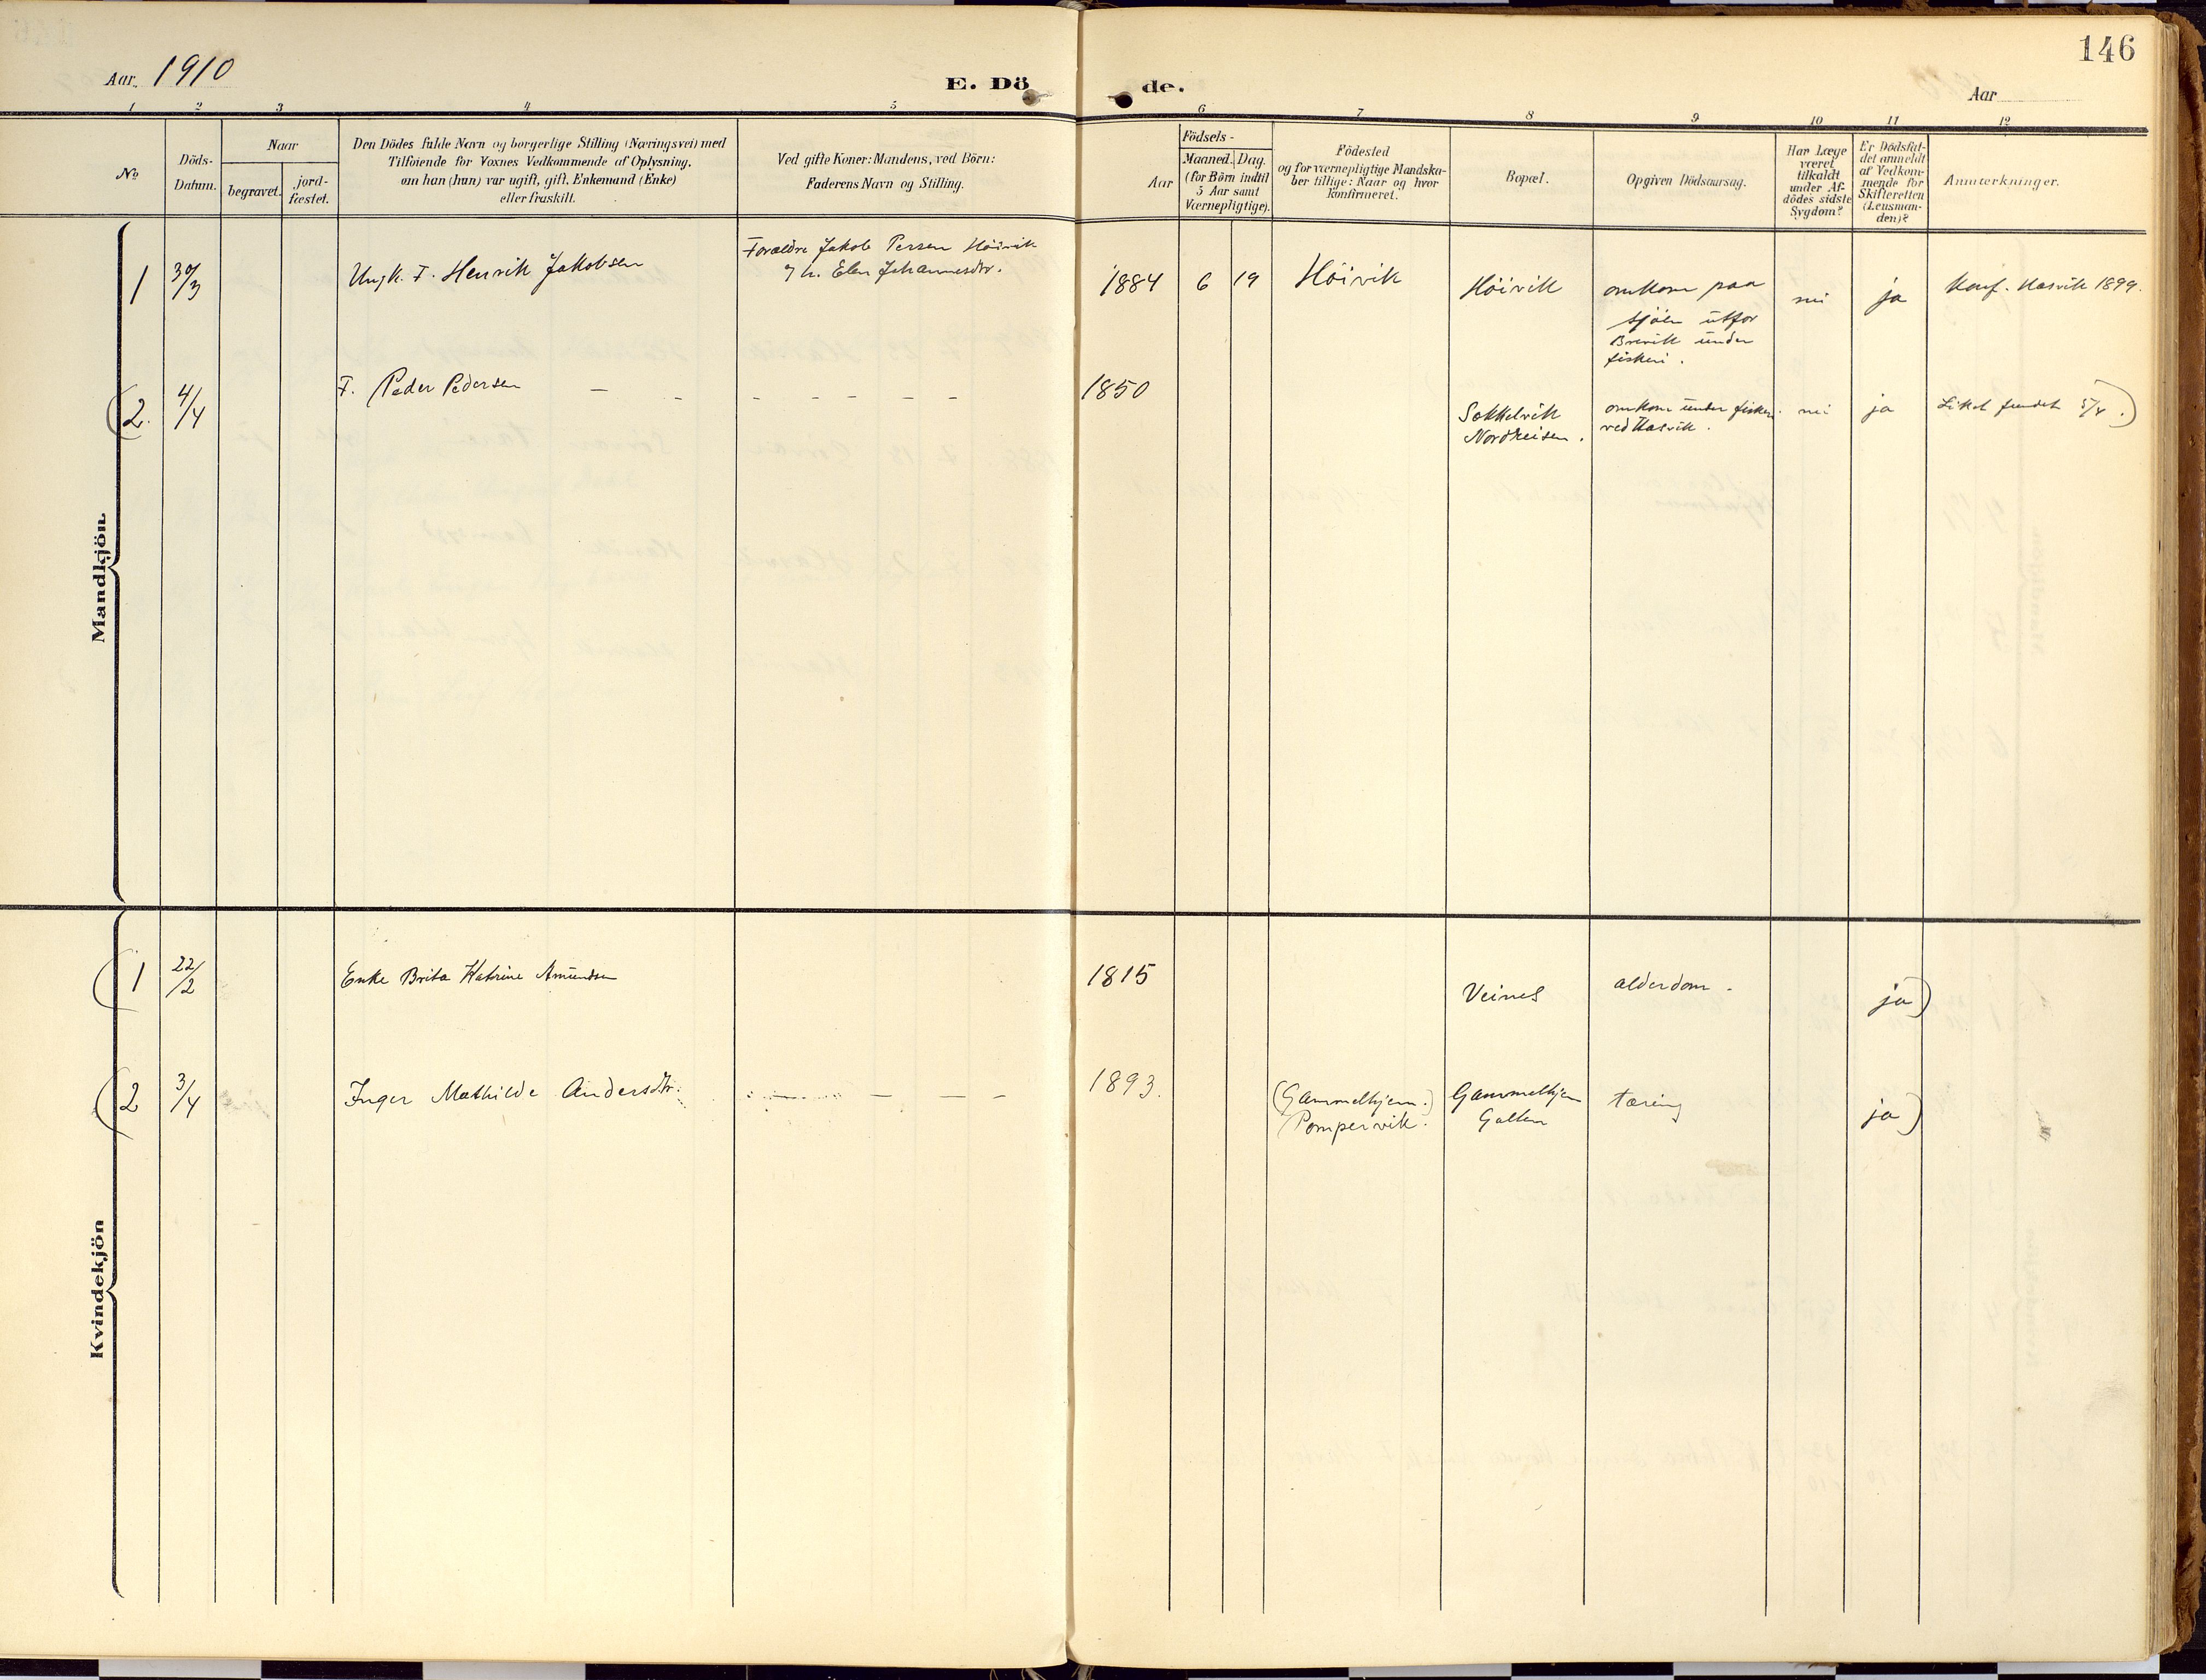 146
Aar 1910
E. Dö de.
Aar
1 2 3 4 5 6 7 8 9 10 11 12
No
Döds-
Datum.
Naar
begravet.
jord-
fæstet.
Den Dödes fulde Navn og borgerlige Stilling (Næringsvei) med
Tilföiende for Voxnes Vedkommende af Oplysning,
om han (hun) var ugift, gift, Enkemand (Enke)
eller fraskilt.
Ved gifte Koner: Mandens, ved Börn:
Faderens Navn og Stilling.
Födsels-
Aar
Maaned. Dag.
(for Börn indtil
5 Aar samt
Værnepligtige).
Födested
og for værnepligtige Mandska-
ber tillige: Naar og hvor
konfirmeret.
Bopæl.
Opgiven Dödsaarsag.
Har Læge
været
tilkaldt
under Af-
dödes sidste
Sygdom?
Er Dödsfal-
det anmeldt
af Vedkom-
mende for
Skifteretten
(Lensman-
den)?
Anmærkninger.
Mandkjön.
1 30/3 Ungk. F. Henrik Jakobsen
Forældre Jakob Persen Höivik
og h. Elen Johannesdtr.
1884 6 19 Höivik Höivik
omkom paa
sjöen utfor
Brevik under
fiskeri.
nei ja Konf. Hasvik 1899.
(2. 4/4 F. Peder Pedersen — - - - - - - -
1850
Sokkelvik
Nordreisen.
omkom under fiskeri
ved Hasvik.
nei ja Liket fundet 5/4.)
Kvindekjön
(1 22/2 Enke Brita Katrine Amundsen
1815 Veines alderdom. ja)
(2 3/4 Inger Mathilde Andersdtr.
1893.
(Gammelhjem.)
Pompervik.
Gammelhjem
Galten
tæring ja)